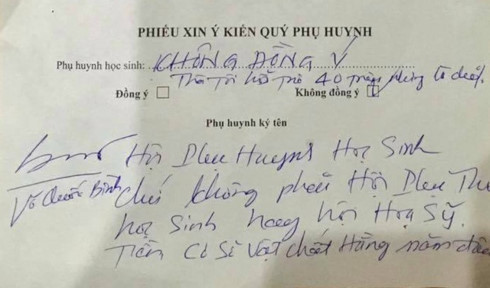 PHIẾU XIN Ý KIẾN QUÝ PHỤ HUYNH
Phụ huynh học sinh: KHÔNG ĐỒNG Ý
hỗ trợ 40
Đồng ý Không đồng ý
Phụ huynh ký tên
Hội Phụ Huynh Học Sinh
Võ Quốc Bình chứ không phải Hội Phụ Thu
học Sinh hay hội Hoạ Sỹ.
Tiền Cơ Sở Vật chất Hằng năm đâu